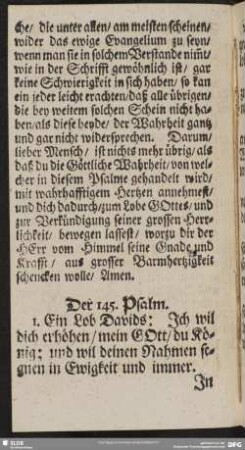 che/ die unter allen/ am meisten scheinen/
wider das ewige Evangelium zu seyn/
wenn man sie in solchem Verstande nimt/
wie in der Schrifft gewöhnlich ist/ gar
keine Schwierigkeit in sich haben/ so kan
ein jeder leicht erachten/ daß alle übrigen/
die bey weitem solchen Schein nicht ha-
ben/ als diese beyde/ der Wahrheit gantz
und gar nicht widersprechen. Darum/
lieber Mensch/ ist nichts mehr übrig/ als
daß du die Göttliche Wahrheit/ von wel-
cher in diesem Psalme gehandelt wird/
mit wahrhafftigem Hertzen annehmest/
und dich dadurch/ zum Lobe GOttes/ und
zur Verkündigung seiner grossen Herr-
lichkeit/ bewegen lassest/ worzu dir der
HErr vom Himmel seine Gnade und
Krafft/ aus grosser Barmhertzigkeit
schencken wolle/ Amen.
Der 145. Psalm.
1. Ein Lob Davids: Ich wil
dich erhöhen/ mein GOtt/ du Kö-
nig: und wil deinen Nahmen se-
gnen in Ewigkeit und immer.
In
SLUB
DFG